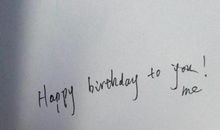 Happy birthday to you!
me